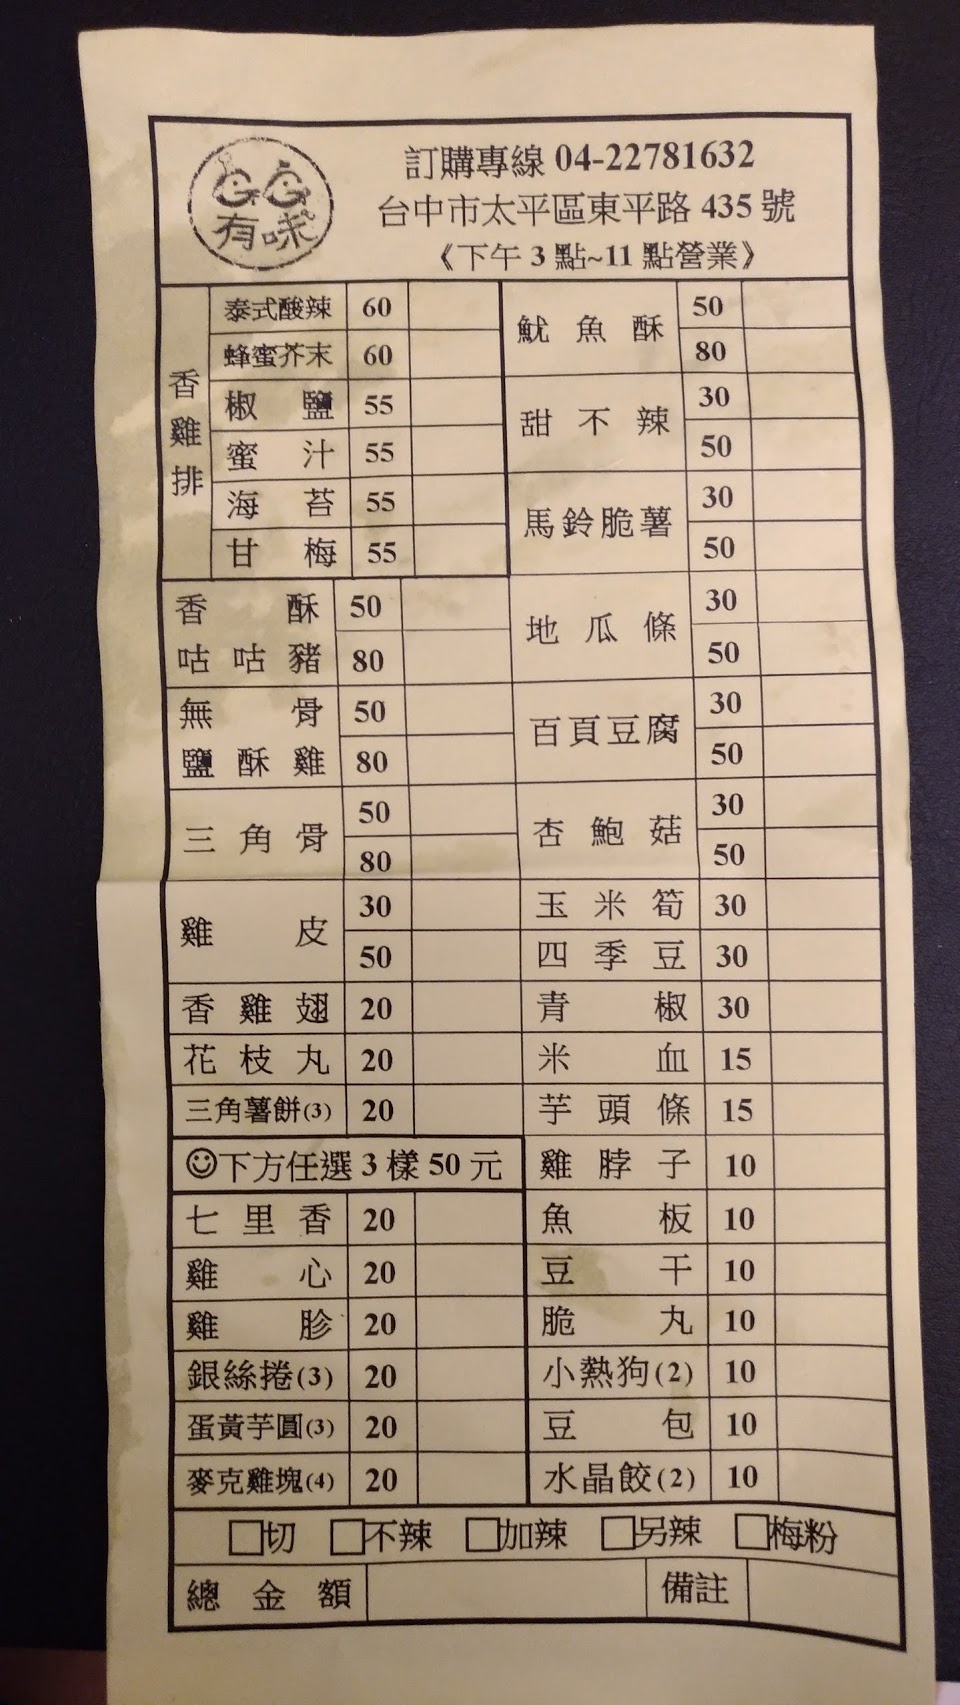 有味
訂購專線 04-22781632
台中市太平區東平路 435 號
《下午 3 點~11 點營業》
香雞排
泰式酸辣 60
蜂蜜芥末 60
椒鹽 55
蜜汁 55
海苔 55
甘梅 55
香酥咕咕豬 50
80
無骨鹽酥雞 50
80
三角骨 50
80
雞皮 30
50
香雞翅 20
花枝丸 20
三角薯餅(3) 20
☺下方任選 3 樣 50 元
七里香 20
雞心 20
雞胗 20
銀絲捲(3) 20
蛋黃芋圓(3) 20
麥克雞塊(4) 20
魷魚酥 50
80
甜不辣 30
50
馬鈴脆薯 30
50
地瓜條 30
50
百頁豆腐 30
50
杏鮑菇 30
50
玉米筍 30
四季豆 30
青椒 30
米血 15
芋頭條 15
雞脖子 10
魚板 10
豆干 10
脆丸 10
小熱狗(2) 10
豆包 10
水晶餃(2) 10
□切 □不辣 □加辣 □另辣 □梅粉
總金額 備註